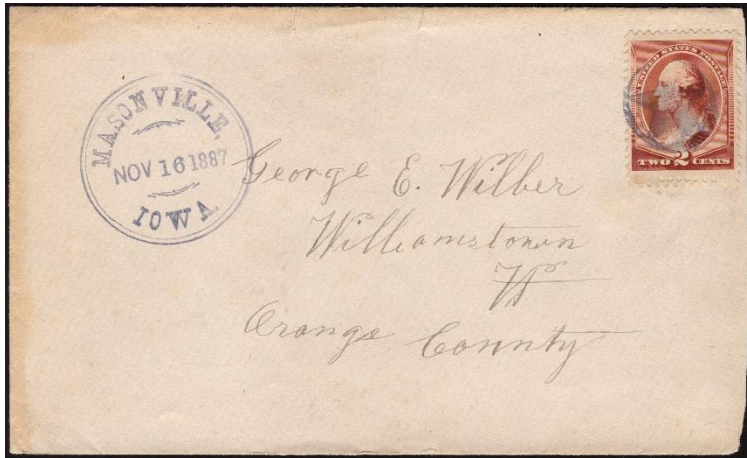 MASONVILLE,
NOV 16 1887
IOWA.
UNITED STATES POSTAGE
TWO 2 CENTS
George E. Wilber
Williamstown
Vt
Orange County